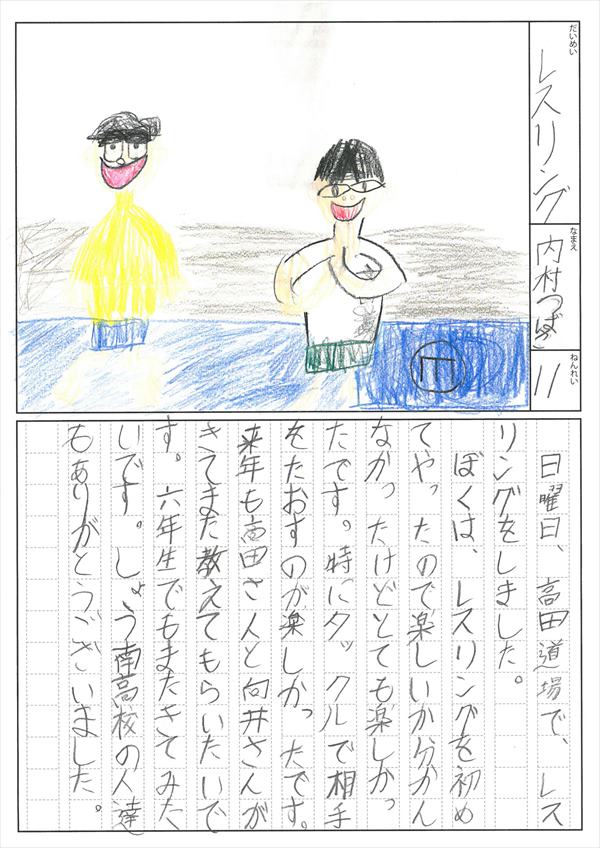 だいめい
レスリング
なまえ
内村つばさ
ねんれい
11
日曜日、高田道場で、レス
リングをしました。
ぼくは、レスリングを初め
てやったので楽しいか分かん
なかったけどとても楽しかっ
たです。特にタックルで相手
をたおすのが楽しかったです。
来年も高田さんと向井さんが
きてまた教えてもらいたいで
す。六年生でもまたきてみた
いです。しょう南高校の人達
もありがとうございました。